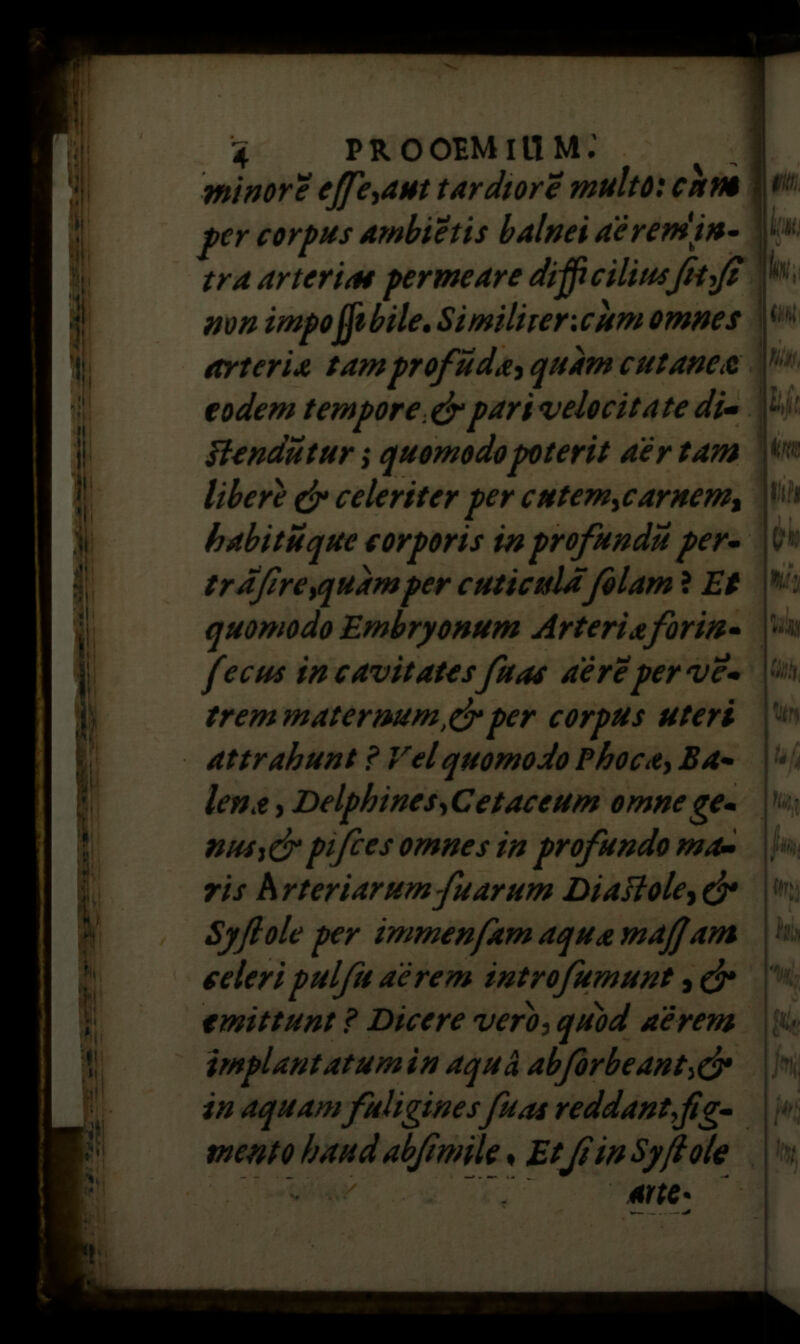 4 PROOEMIUM.
minorẽ esse, aut tardiorẽ multo: cùm
per corpus ambiẽtis balnei aërem in-
tra arterias permeare difficilius sit, si
non impossibile. Similiter: cùm omnes
arteriæ tam profũdæ, quàm cutaneæ
eodem tempore, & pari velocitate di-
stendũtur; quomodo poterit aër tam
liberè & celeriter per cutem, carnem,
habitũque corporis in profundũ per-
trãsire, quàm per cuticulã solam? Et
quomodo Embryonum Arteriæ forin-
secus in cavitates suas aërẽ per vẽ-
trem maternum, & per corpus uteri
attrahunt? Vel quomodo Phocæ, Ba-
lenæ, Delphines, Cetaceum omne ge-
nus, & pisces omnes in profundo ma-
ris Arteriarum suarum Diastole, &
Systole per immensam aquæ massam
celeri pulsu aërem introsumunt, &
emittunt? Dicere verò, quòd aërem
implantatum in aquâ absorbeant, &
in aquam fuligines suas reddant, fig-
mento haud absimile. Et si in Systole
arte-